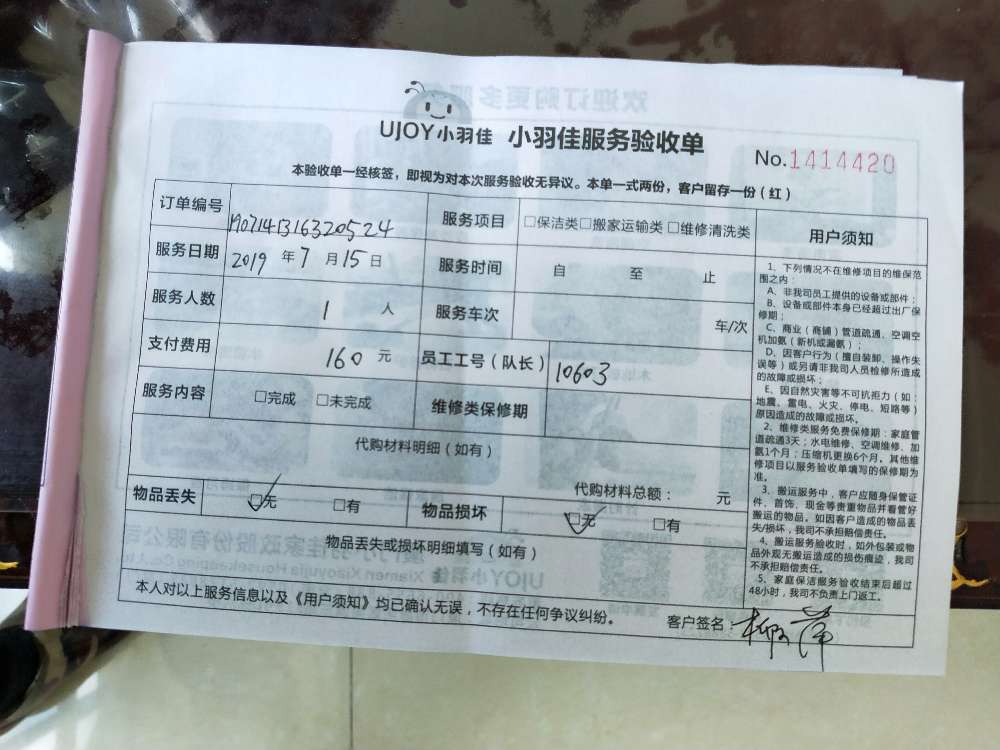 UJOY小羽佳 小羽佳服务验收单
No.1414420
本验收单一经核签，即视为对本次服务验收无异议。本单一式两份，客户留存一份（红）
订单编号 190714131632052​4 服务项目 □保洁类□搬家运输类□维修清洗类
服务日期 2019 年 7 月 15 日 服务时间 自 至 止
服务人数 1 人 服务车次 车/次
支付费用 160 元 员工工号（队长） 10603
服务内容 □完成 □未完成 维修类保修期
代购材料明细（如有）
代购材料总额： 元
物品丢失 ☑无 □有 物品损坏 ☑无 □有
物品丢失或损坏明细填写（如有）
本人对以上服务信息以及《用户须知》均已确认无误，不存在任何争议纠纷。 客户签名：
用户须知
1、下列情况不在维修项目的维保范
围之内：
A、非我司员工提供的设备或部件；
B、设备或部件本身已经超过出厂保
修期；
C、商业（商铺）管道疏通、空调空
机加氨（新机或漏氨）；
D、因客户行为（擅自装卸、操作失
误等）或另请非我司人员检修所造成
的故障或损坏；
E、因自然灾害等不可抗拒力（如：
地震、雷电、火灾、停电、短路等）
原因造成的故障或损坏。
2、维修类服务免费保修期：家庭管
道疏通3天；水电维修、空调维修、加
氨1个月；压缩机更换6个月。其他维
修项目以服务验收单填写的保修期为
准。
3、搬运服务中，客户应随身保管证
件、首饰、现金等贵重物品并看管好
搬运的物品。如因客户造成的物品丢
失/损坏，我司不承担赔偿责任。
4、搬运服务验收时，如外包装或物
品外观无搬运造成的损伤痕迹，我司
不承担赔偿责任。
5、家庭保洁服务验收结束后超过
48小时，我司不负责上门返工。